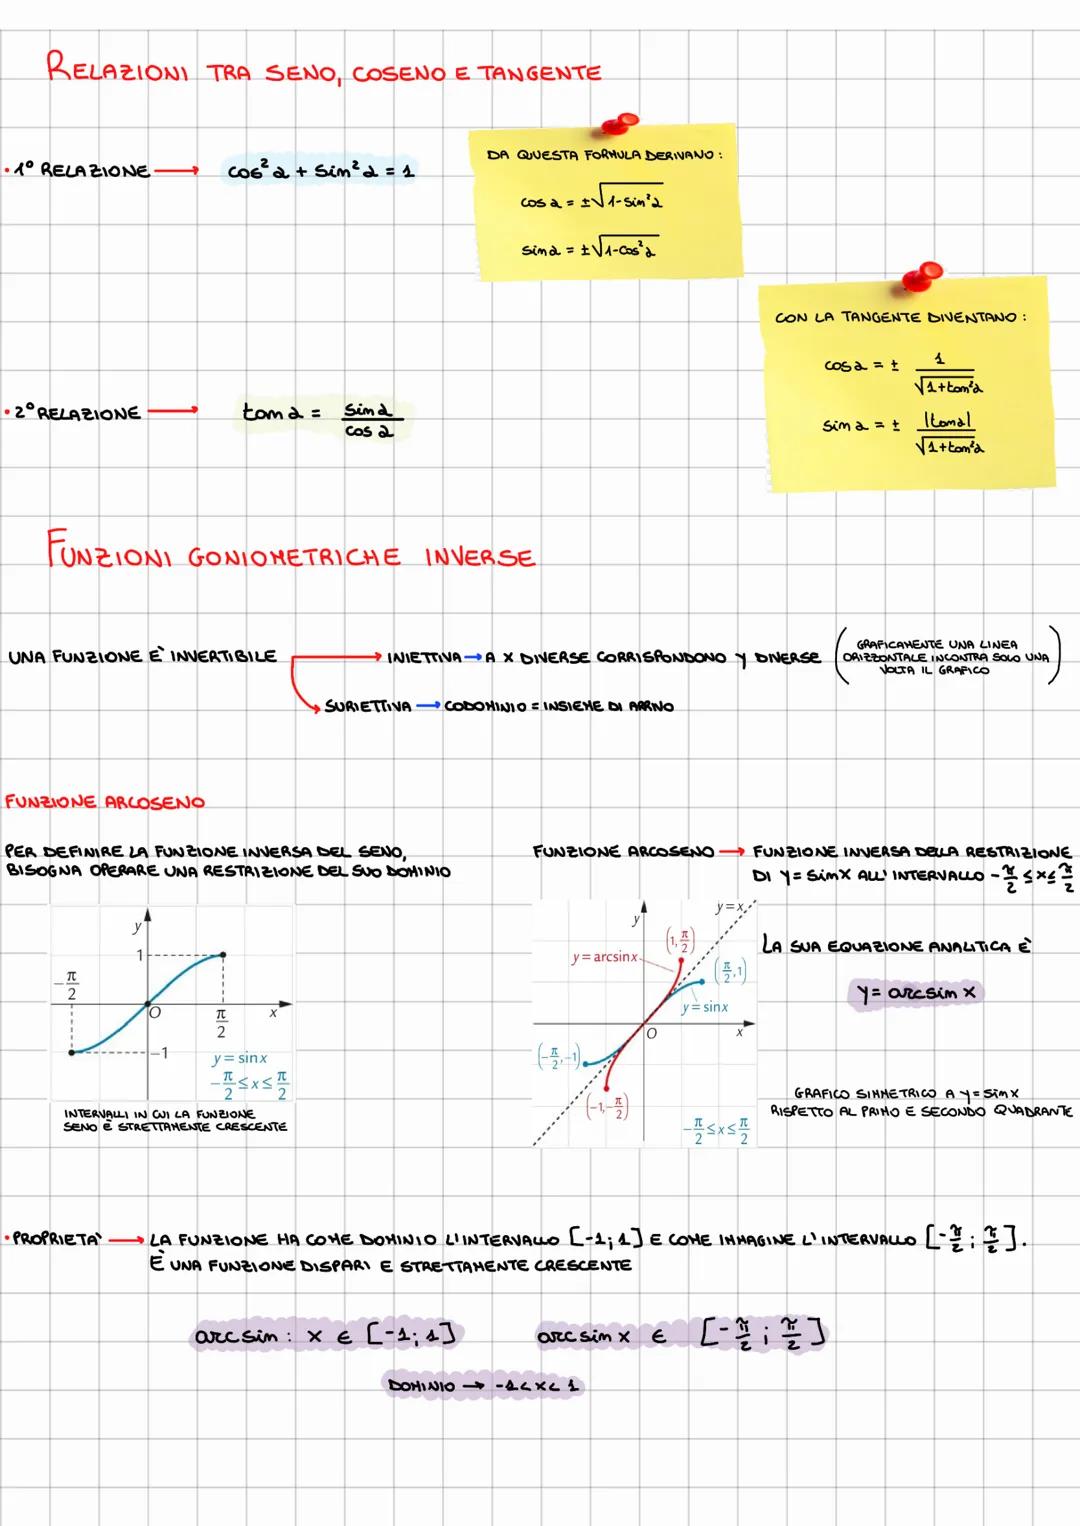 RELAZIONI TRA SENO, COSENO E TANGENTE
• 1° RELAZIONE → cos² α + sin² α = 1
DA QUESTA FORMULA DERIVANO:
cos α = ±√1-sin²α
sin α = ±√1-cos²α
CON LA TANGENTE DIVENTANO:
cos α = ± 1/√1+tan²α
sin α = ± |tan α|/√1+tan²α
• 2° RELAZIONE → tan α = sin α/cos α
FUNZIONI GONIOMETRICHE INVERSE
UNA FUNZIONE E' INVERTIBILE → INIETTIVA → A X DIVERSE CORRISPONDONO Y DIVERSE
(GRAFICAMENTE UNA LINEA
ORIZZONTALE INCONTRA SOLO UNA
VOLTA IL GRAFICO)
→ SURIETTIVA → CODOMINIO = INSIEME DI ARRIVO
FUNZIONE ARCOSENO
PER DEFINIRE LA FUNZIONE INVERSA DEL SENO,
BISOGNA OPERARE UNA RESTRIZIONE DEL SUO DOMINIO
y
1
-π/2
O
π/2
x
-1
y = sin x
-π/2 ≤ x ≤ π/2
INTERVALLI IN CUI LA FUNZIONE
SENO È STRETTAMENTE CRESCENTE
FUNZIONE ARCOSENO → FUNZIONE INVERSA DELLA RESTRIZIONE
DI Y = sin X ALL' INTERVALLO -π/2 ≤ X ≤ π/2
y
y = x
(1, π/2)
y = arcsin x
(π/2, 1)
y = sin x
O
x
(-π/2, -1)
(-1, -π/2)
-π/2 ≤ x ≤ π/2
LA SUA EQUAZIONE ANALITICA È
Y = arcsin X
GRAFICO SIMMETRICO A Y = sin X
RISPETTO AL PRIMO E SECONDO QUADRANTE
• PROPRIETA' → LA FUNZIONE HA COME DOMINIO L'INTERVALLO [-1; 1] E COME IMMAGINE L' INTERVALLO [-π/2; π/2].
È UNA FUNZIONE DISPARI E STRETTAMENTE CRESCENTE
arcsin : X ∈ [-1; 1]
arcsin X ∈ [-π/2; π/2]
DOMINIO → -1 < X < 1